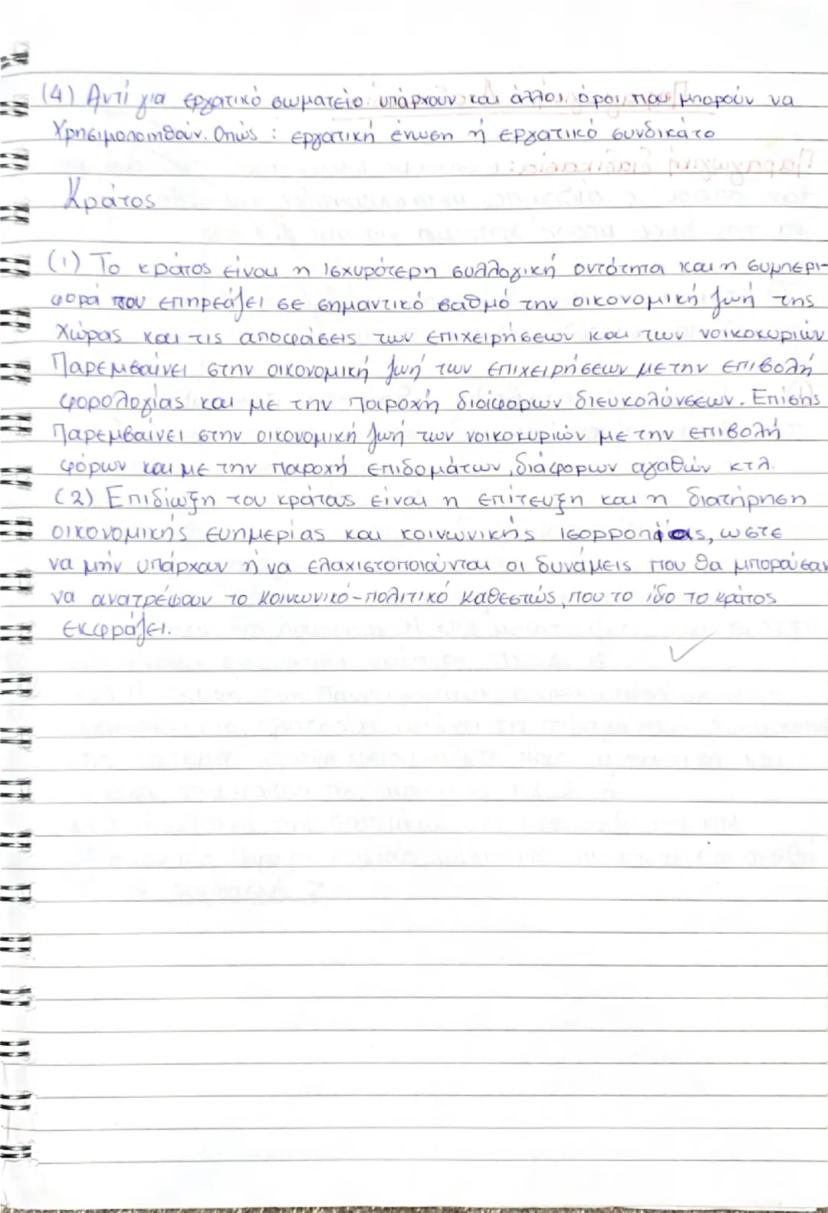 (4) Αντί για εργατικό σωματείο υπάρχουν και άλλοι όροι που μπορούν να
χρησιμοποιηθούν. Οπώς : εργατική ένωση ή εργατικό συνδικάτο
Παραγωγική διαδικασία:
Κράτος
(1) Το κράτος είναι η ισχυρότερη συλλογική οντότητα και η συμπερι-
φορά του επηρεάζει σε σημαντικό βαθμό την οικονομική ζωή της
χώρας και τις αποφάσεις των επιχειρήσεων και των νοικοκυριών
Παρεμβαίνει στην οικονομική ζωή των επιχειρήσεων με την επιβολή
φορολογίας και με την παροχή διαφόρων διευκολύνσεων. Επίσης
παρεμβαίνει στην οικονομική ζωή των νοικοκυριών με την επιβολή
φόρων και με την παροχή επιδομάτων, διάφορων αγαθών κτλ.
(2) Επιδίωξη του κράτους είναι η επίτευξη και η διατήρηση
οικονομικής ευημερίας και κοινωνικής ισορροπίας, ωστε
να μην υπάρχουν ή να ελαχιστοποιούνται οι δυνάμεις που θα μπορούσαν
να ανατρέψουν το κοινωνικό-πολιτικό καθεστώς, που το ίδο το κράτος
εκφράζει.